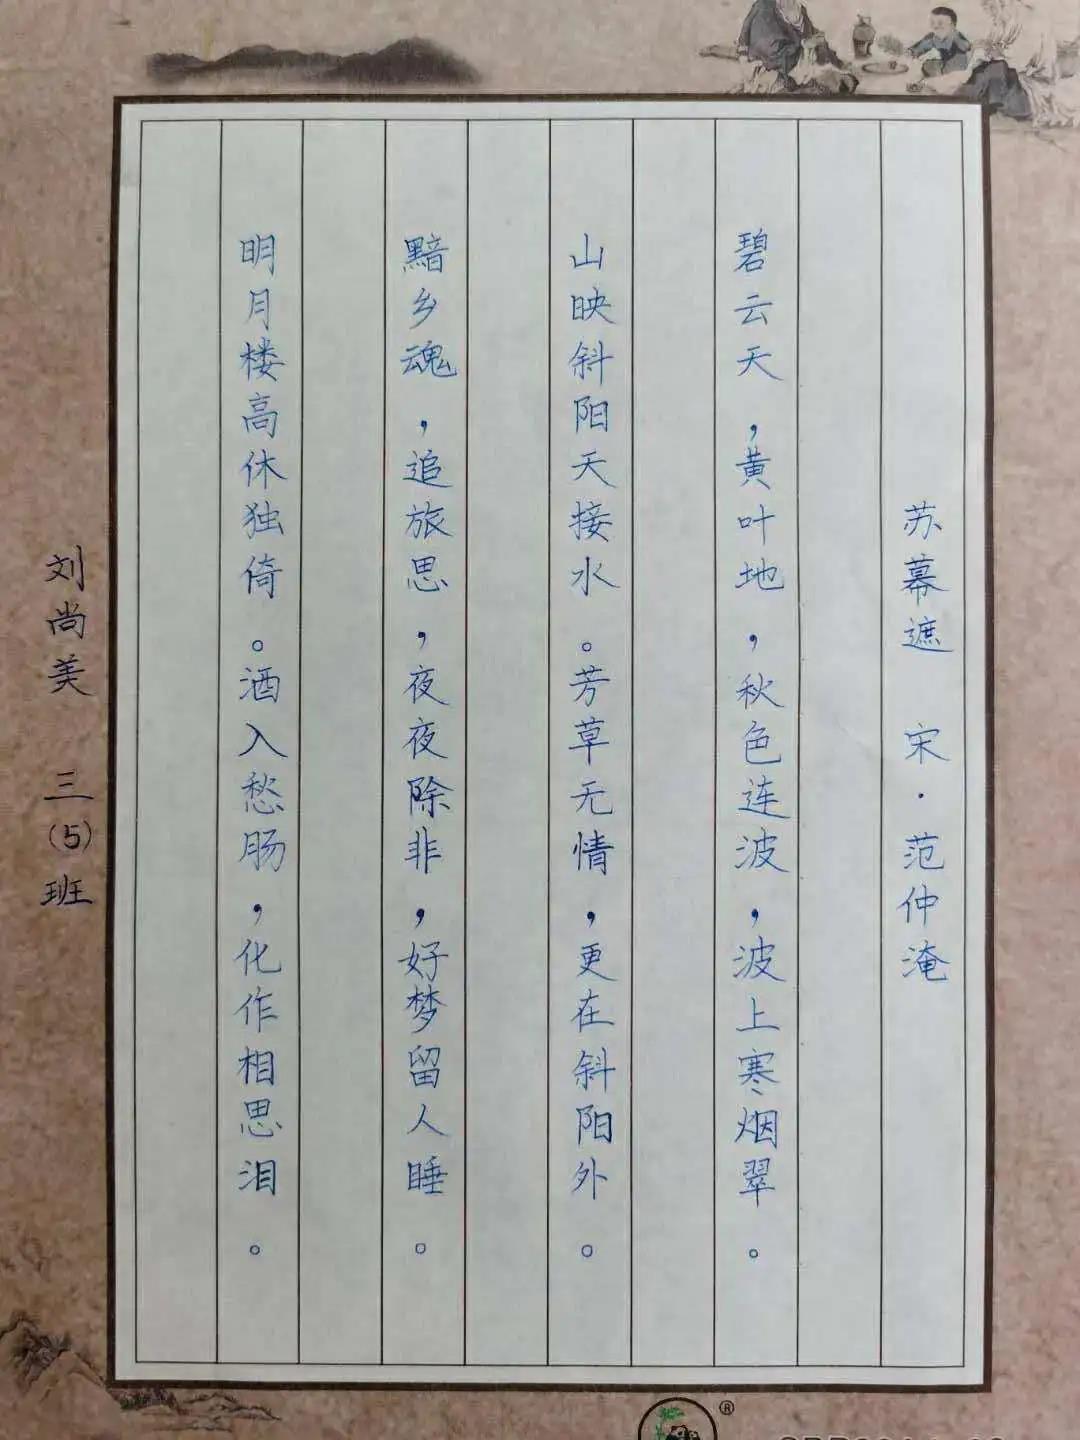 苏幕遮 宋·范仲淹
碧云天，黄叶地，秋色连波，波上寒烟翠。
山映斜阳天接水。芳草无情，更在斜阳外。
黯乡魂，追旅思，夜夜除非，好梦留人睡。
明月楼高休独倚。酒入愁肠，化作相思泪。
刘尚美 三(5)班
®